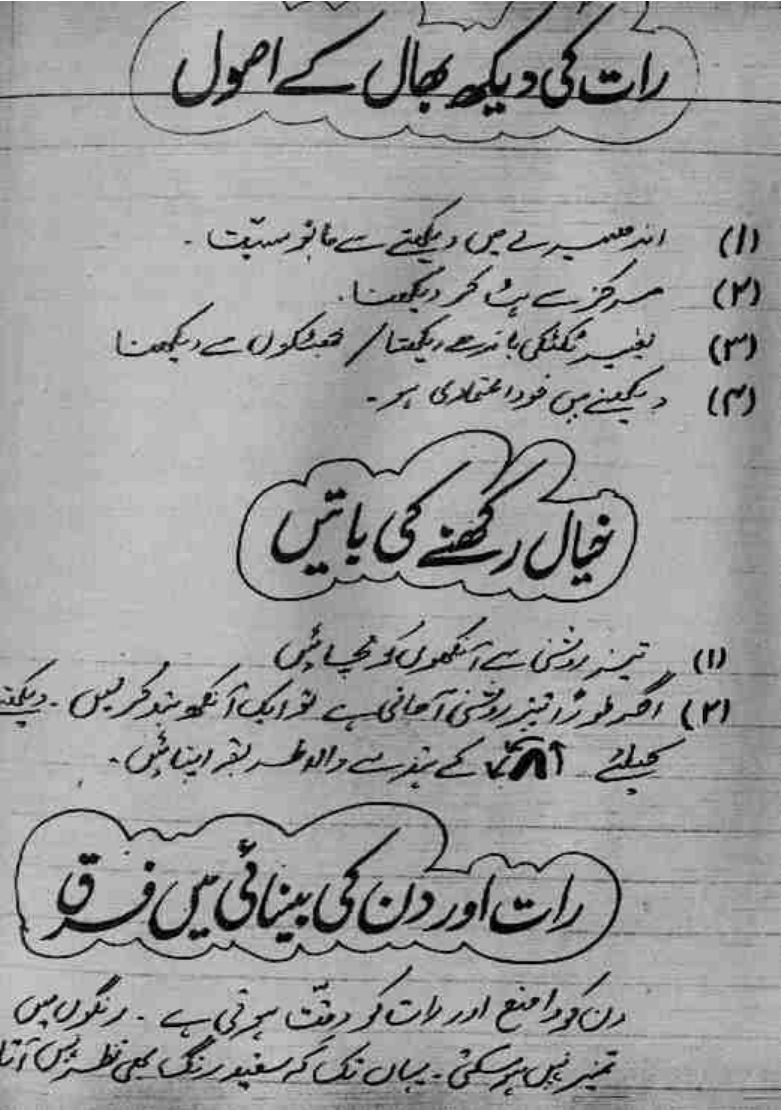 رات کی دیکھ بھال کے اصول
(۱) اندھیرے میں دیکھنے سے مانوسیت ۔
(۲) مرکز سے ہٹ کر دیکھنا ۔
(۳) بغیر ٹکٹکی باندھے دیکھنا / جھٹکوں سے دیکھنا
(۴) دیکھنے میں خود اعتمادی ہو ۔
خیال رکھنے کی باتیں
(۱) تیز روشنی سے آنکھوں کو بچائیں
(۲) اگر فوراً تیز روشنی آجاتی ہے تو ایک آنکھ بند کر لیں ۔ دیکھنے
کیلئے کے ہندسے والا طریقہ اپنائیں ۔
رات اور دن کی بینائی میں فرق
دن کو واضح اور رات کو دقّت ہوتی ہے ۔ رنگوں میں
تمیز نہیں ہو سکتی ۔ یہاں تک کہ سفید رنگ بھی نظر نہیں آتا